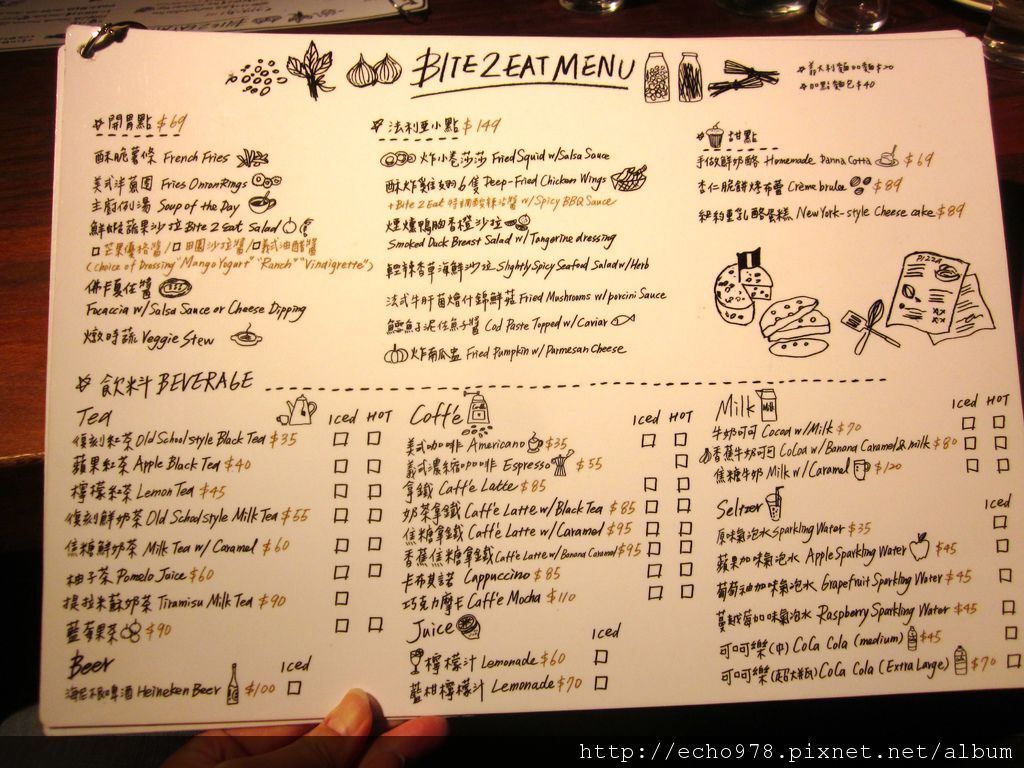 BITE 2 EAT MENU
*義大利麵加麵$20
*加點麵包$40
開胃點 $69
酥脆薯條 French Fries
美式洋蔥圈 Fries Onion Rings
主廚例湯 Soup of the Day
鮮蝦蔬果沙拉 Bite 2 Eat Salad
□芒果優格醬/□田園沙拉醬/□義式油醋醬
(choice of Dressing "Mango Yogurt" "Ranch" "Vindigrette")
佛卡夏佐醬
Focaccia w/ Salsa Sauce or Cheese Dipping
燉時蔬 Veggie Stew
法利亞小點 $149
炸小卷莎莎 Fried Squid w/Salsa Sauce
酥炸雞佳翅6隻 Deep-Fried Chicken Wings
+Bite 2 Eat 特調酸辣沾醬 w/ Spicy BBQ Sauce
煙燻鴨胸香橙沙拉
Smoked Duck Breast Salad w/ Tangerine dressing
輕辣香草海鮮沙拉 Slightly Spicy Seafood Salad w/Herb
法式牛肝菌燴什錦鮮菇 Fried Mushrooms w/ porcini Sauce
鱈魚子泥佐魚子醬 Cod Paste Topped w/ Caviar
炸南瓜盅 Fried Pumpkin w/ Parmesan Cheese
甜點
手做鮮奶酪 Homemade Panna Cotta $69
杏仁脆餅烤布蕾 Crème brulee $89
紐約重乳酪蛋糕 New York-style Cheese cake $89
PIZZA
飲料 BEVERAGE
Tea Iced HOT
復刻紅茶 Old School style Black Tea $35
蘋果紅茶 Apple Black Tea $40
檸檬紅茶 Lemon Tea $45
復刻鮮奶茶 Old School style Milk Tea $55
焦糖鮮奶茶 Milk Tea w/ Caramel $60
柚子茶 Pomelo Juice $60
提拉米蘇奶茶 Tiramisu Milk Tea $90
藍莓果茶 $90
Beer Iced
海尼根啤酒 Heineken Beer $100
Coff'e Iced HOT
美式咖啡 Americano $35
義式濃縮咖啡 Espresso $55
拿鐵 Caff'e Latte $85
奶茶拿鐵 Caff'e Latte w/ Black Tea $85
焦糖拿鐵 Caff'e Latte w/ Caramel $95
香蕉焦糖拿鐵 Caff'e Latte w/ Banana Caramel $95
卡布其諾 Cappuccino $85
巧克力摩卡 Caff'e Mocha $110
Juice Iced
檸檬汁 Lemonade $60
藍柑檸檬汁 Lemonade $70
Milk Iced HOT
牛奶可可 Cocoa w/ Milk $70
香蕉牛奶可可 CoCoa w/ Banana Caramel & milk $80
焦糖牛奶 Milk w/ Caramel $120
Seltzer Iced
原味氣泡水 Sparkling Water $35
蘋果加味氣泡水 Apple Sparkling Water $45
葡萄柚加味氣泡水 Grapefruit Sparkling Water $45
蔓越莓加味氣泡水 Raspberry Sparkling Water $45
可口可樂(中) CoCa Cola (medium) $45
可口可樂(超大瓶) CoCa Cola (Extra Large) $70
http://echo978.pixnet.net/album